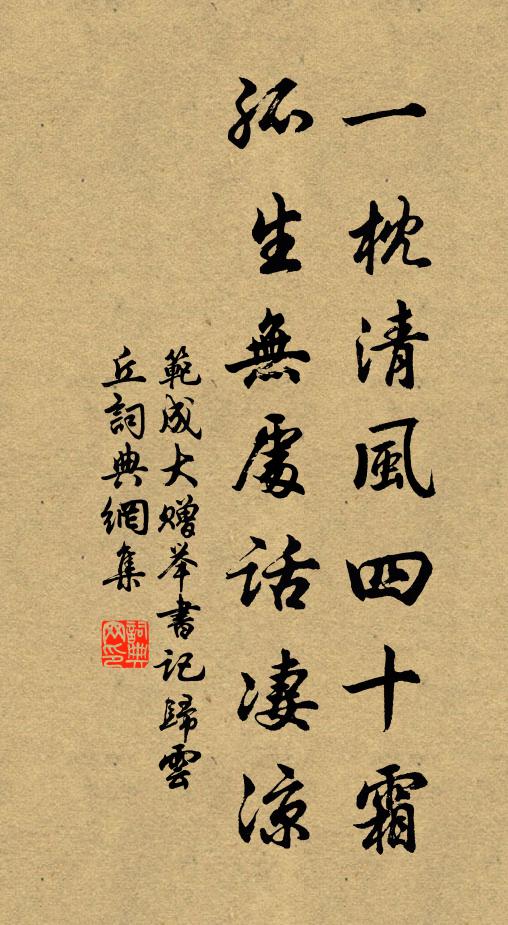 一枕清風四十霜
孤生無處話凄涼
範成大贈举書記歸雲
丘詞典網集
詞典網印